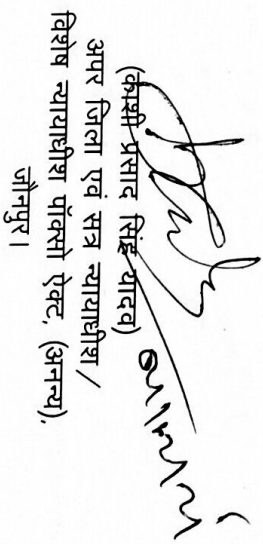 (काशी प्रसाद सिंह यादव)
अपर जिला एवं सत्र न्यायाधीश/
विशेष न्यायाधीश पॉक्सो ऐक्ट, (अनन्य),
जौनपुर।